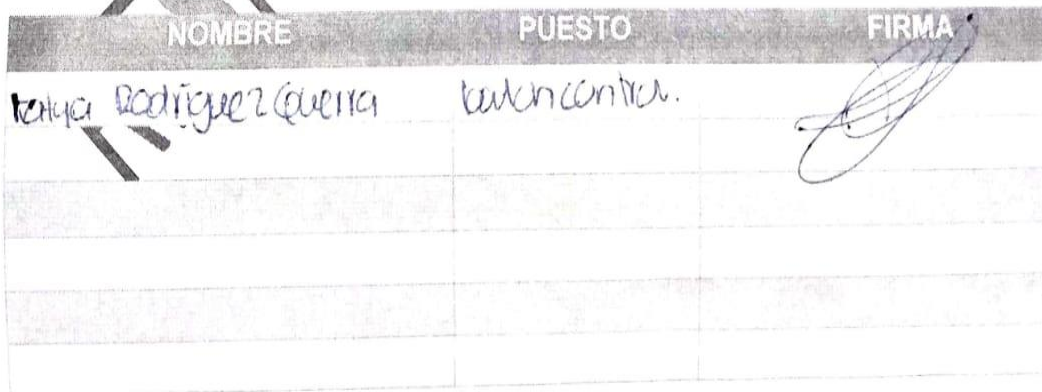 NOMBRE PUESTO FIRMA
Katya Rodríguez Guerra